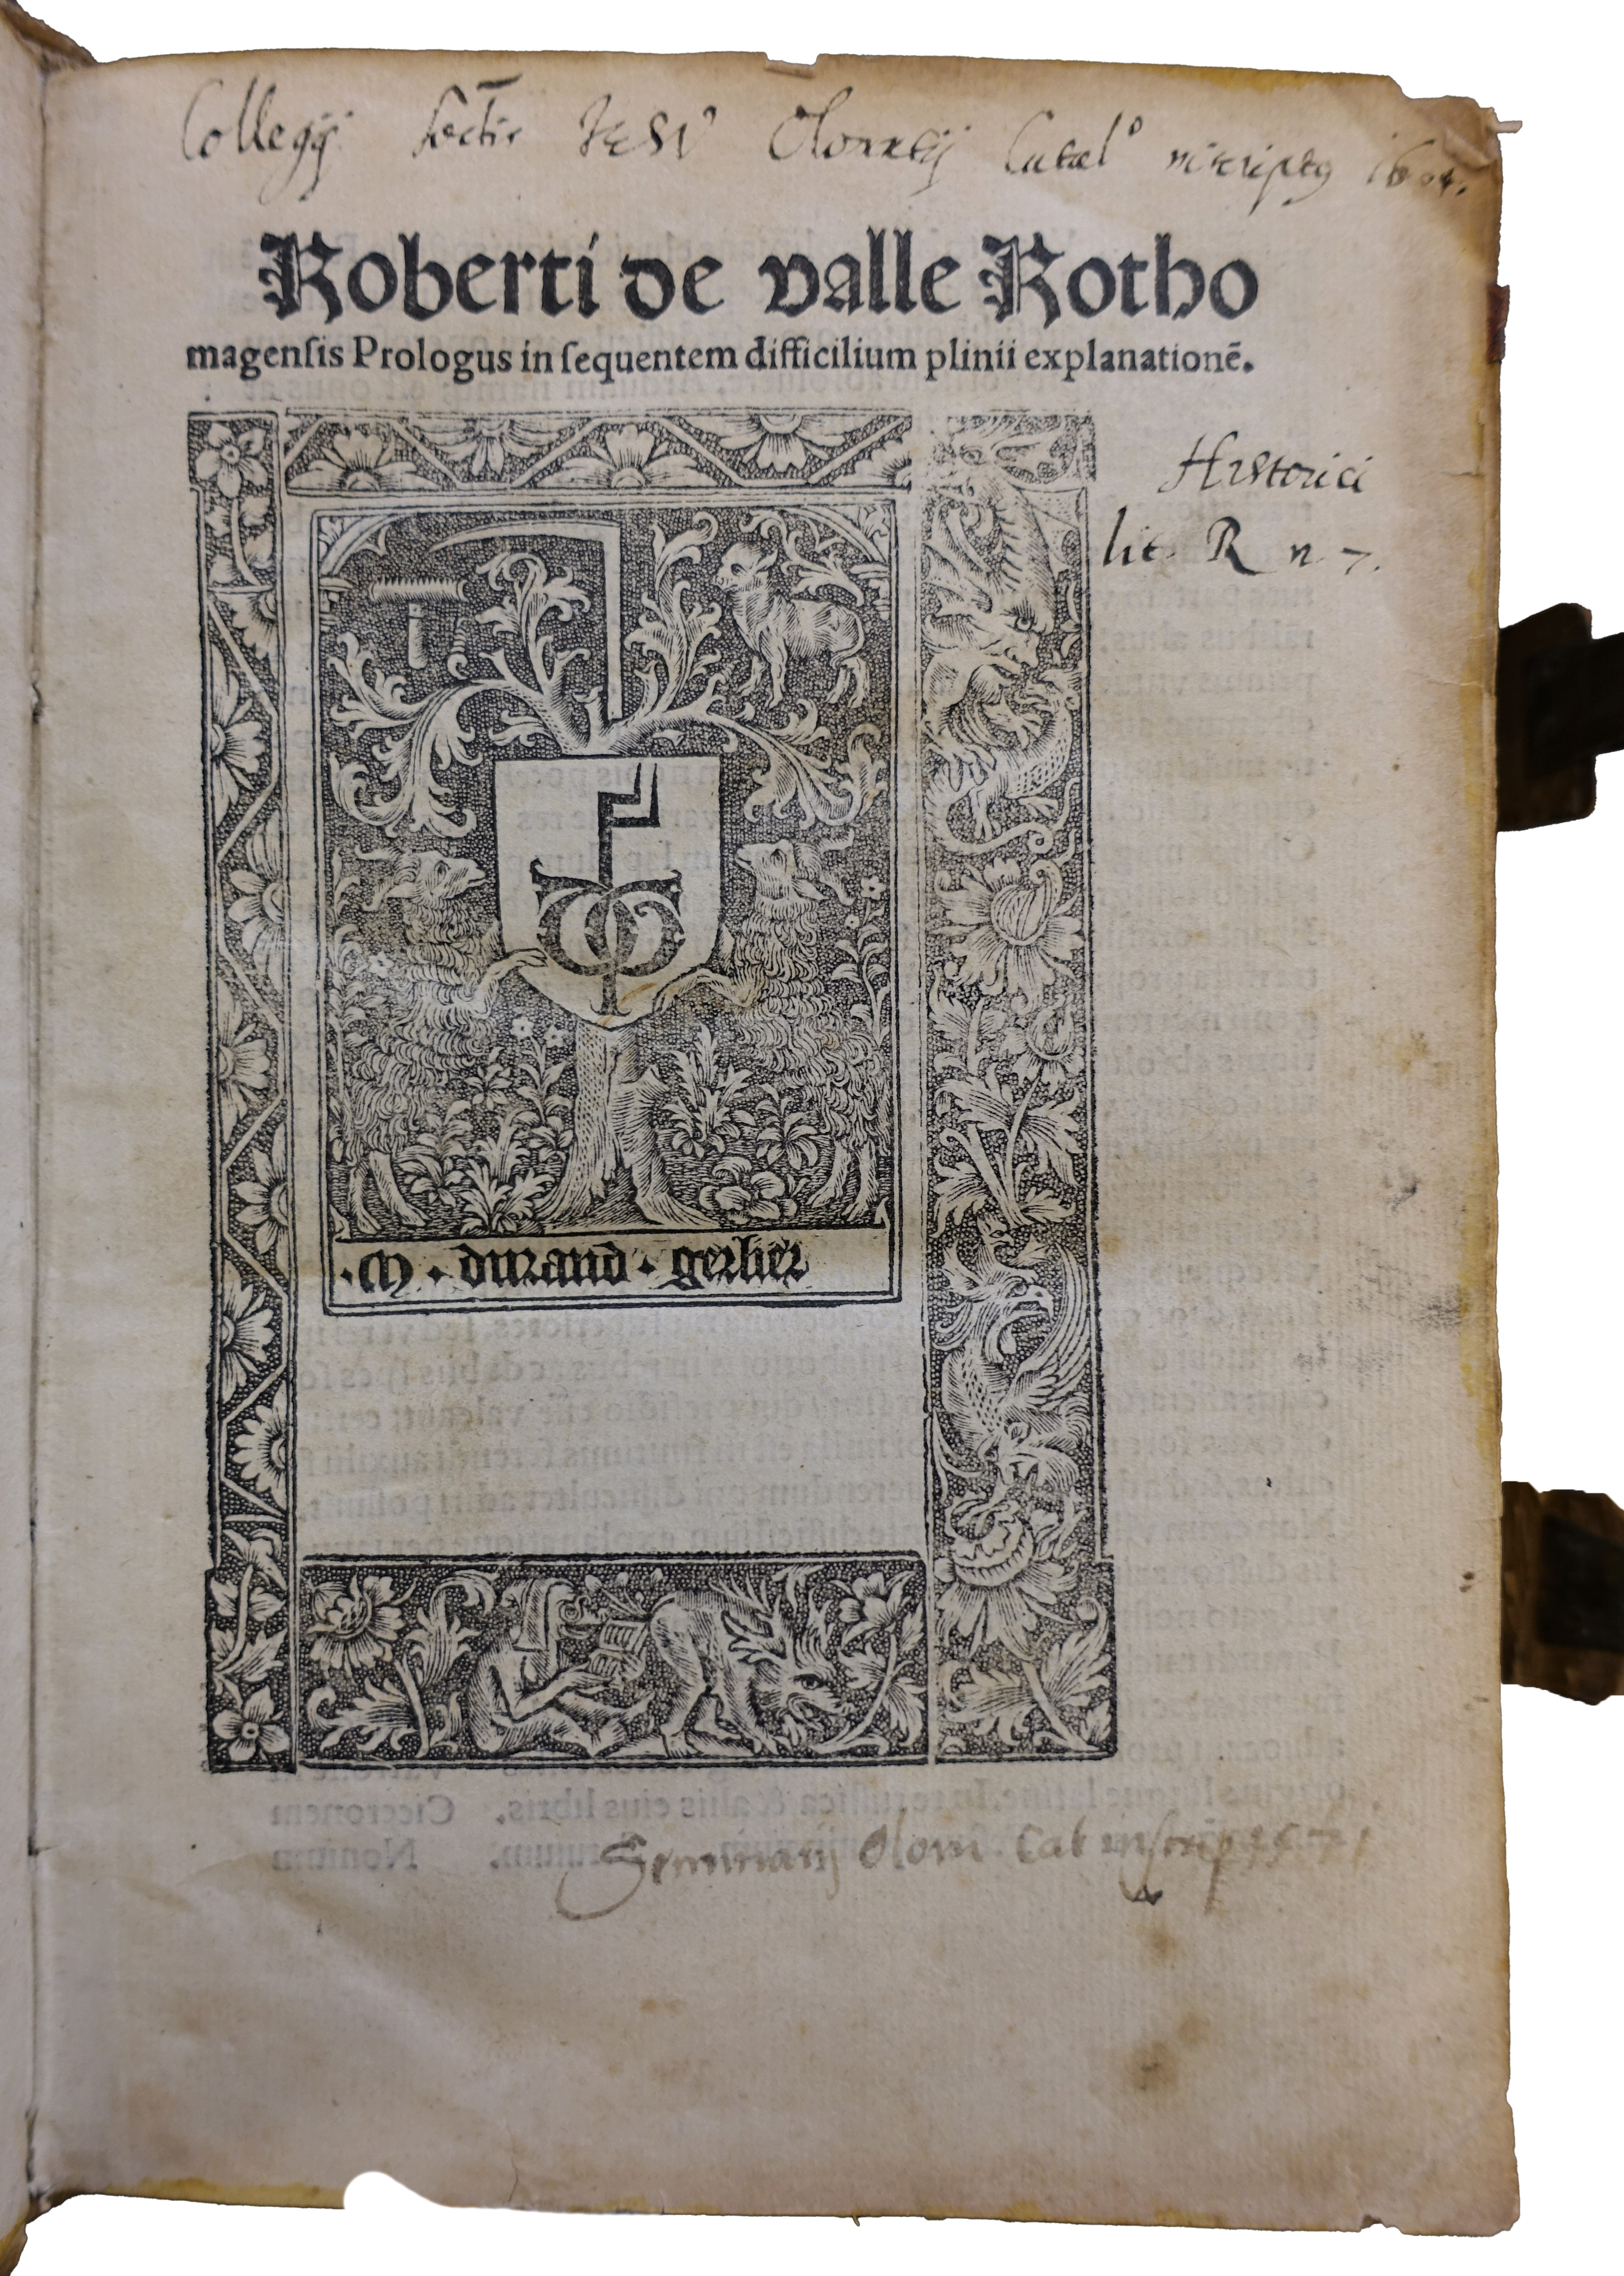 Collegij Soctis JESV Olomutij Catal° inscriptus 1604.
Roberti de valle Rotho
magenſis Prologus in ſequentem difficilium plinii explanationē.
Historici
lit. R n 7.
·M· durand · gerlier
Seminarij Olom Cat inscrip